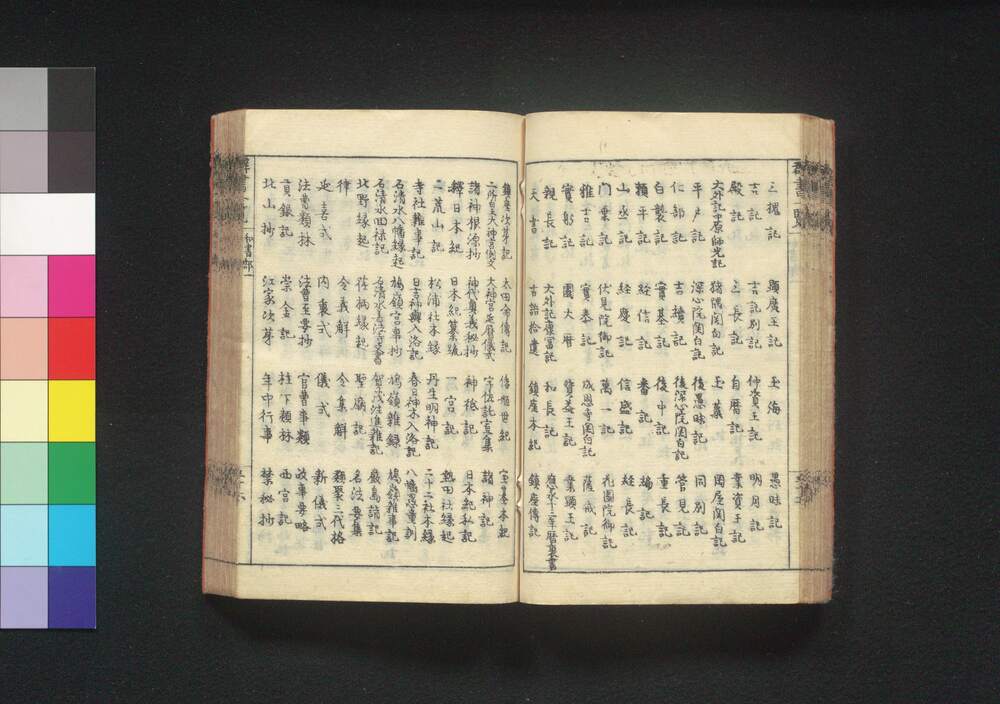 三槐記 顕廣王記 玉海 愚昧記
吉記 吉記別記 仲資王記 明月記
殿記 三長記 自暦記 業資王記
大外記中原師光記 猪隈関白記 玉蘂 岡屋関白記
平戸記 深心院関白記 後愚昧記 同別記
仁部記 吉續記 後深心院関白記 管見記
白襲記 實基記 後中記 重長記
頼平記 経信記 番記 鳩記
山丞記 経慶記 信盛記 経長記
門葉記 伏見院御記 萬一記 花園院御記
雅言記 實泰記 成恩寺関白記 薩戒記
實躬記 園太暦 資益王記 業顕王記
親長記 大外記康富記 和長記 應永十三年暦裏書
天書 古語拾遺 鎮座本紀 鎮座傳記
鎮座次第記 太田命傳記 倭姫世紀 宝基本紀
二所皇太神宮例文 大神宮延暦儀式 宇佐託宣集 諸神記
諸神根源抄 神代奥義秘抄 神祇記 日本紀私記
釋日本紀 日本紀纂疏 一宮記 熱田社縁起
二荒山記 松浦社本縁 丹生明神記 二十二社本縁
寺社雜事記 日吉神輿入洛記 春日神木入洛記 八幡愚童訓
石清水八幡縁起 鳩嶺宮事抄 鳩嶺雜録 鳩嶺雜事記
石清水回禄記 石清水 賀茂注進雜記 厳島詣記
北野縁起 荏柄縁起 聖廟記 名法要集
律 令義解 令集解 類聚三代格
延喜式 内裏式 儀式 新儀式
法曹類林 法曹至要抄 官曹事類 政事要略
貢銀記 崇金記 柱下類林 西宮記
北山抄 江家次第 年中行事 禁秘抄